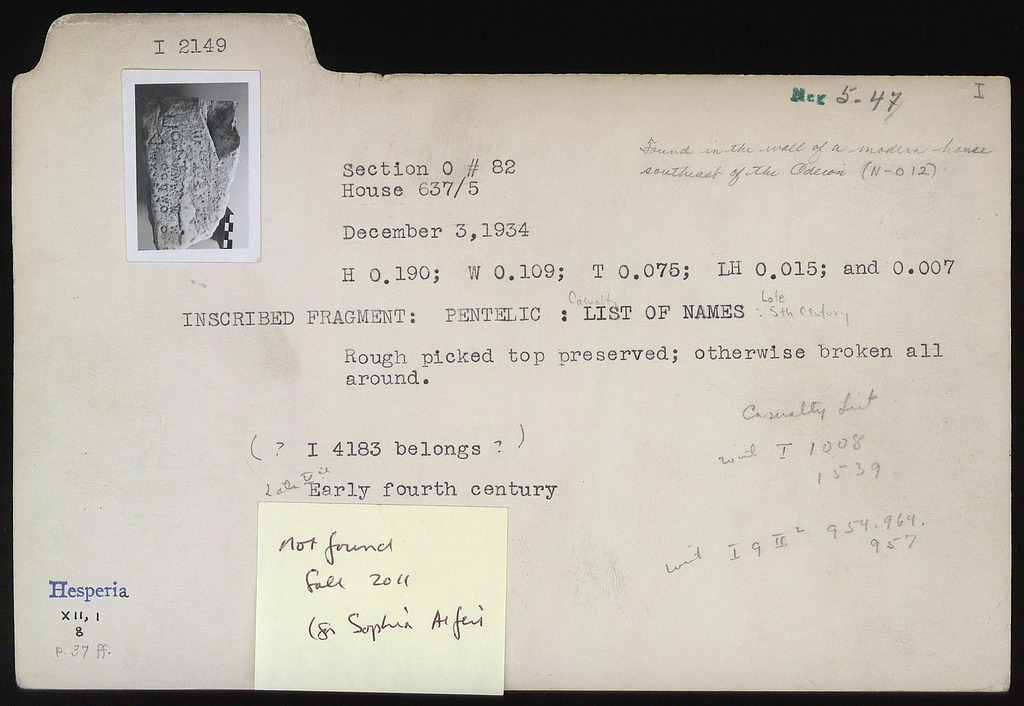 I 2149
5-47
I
Found in the wall of a modern house
southeast of the Odeion (N-O 12)
Section O # 82
House 637/5
December 3,1934
H 0.190; W 0.109; T 0.075; LH 0.015; and 0.007
Casualty
Late
INSCRIBED FRAGMENT: PENTELIC : LIST OF NAMES : 5th Century
Rough picked top preserved; otherwise broken all
around.
Casualty List
( ? I 4183 belongs ? )
with I 1008
1539
Late
Early fourth century
with I G II² 954.964.
957
Not found
fall 2011
(for Sophia
Hesperia
XII, 1
8
p. 37 ff.